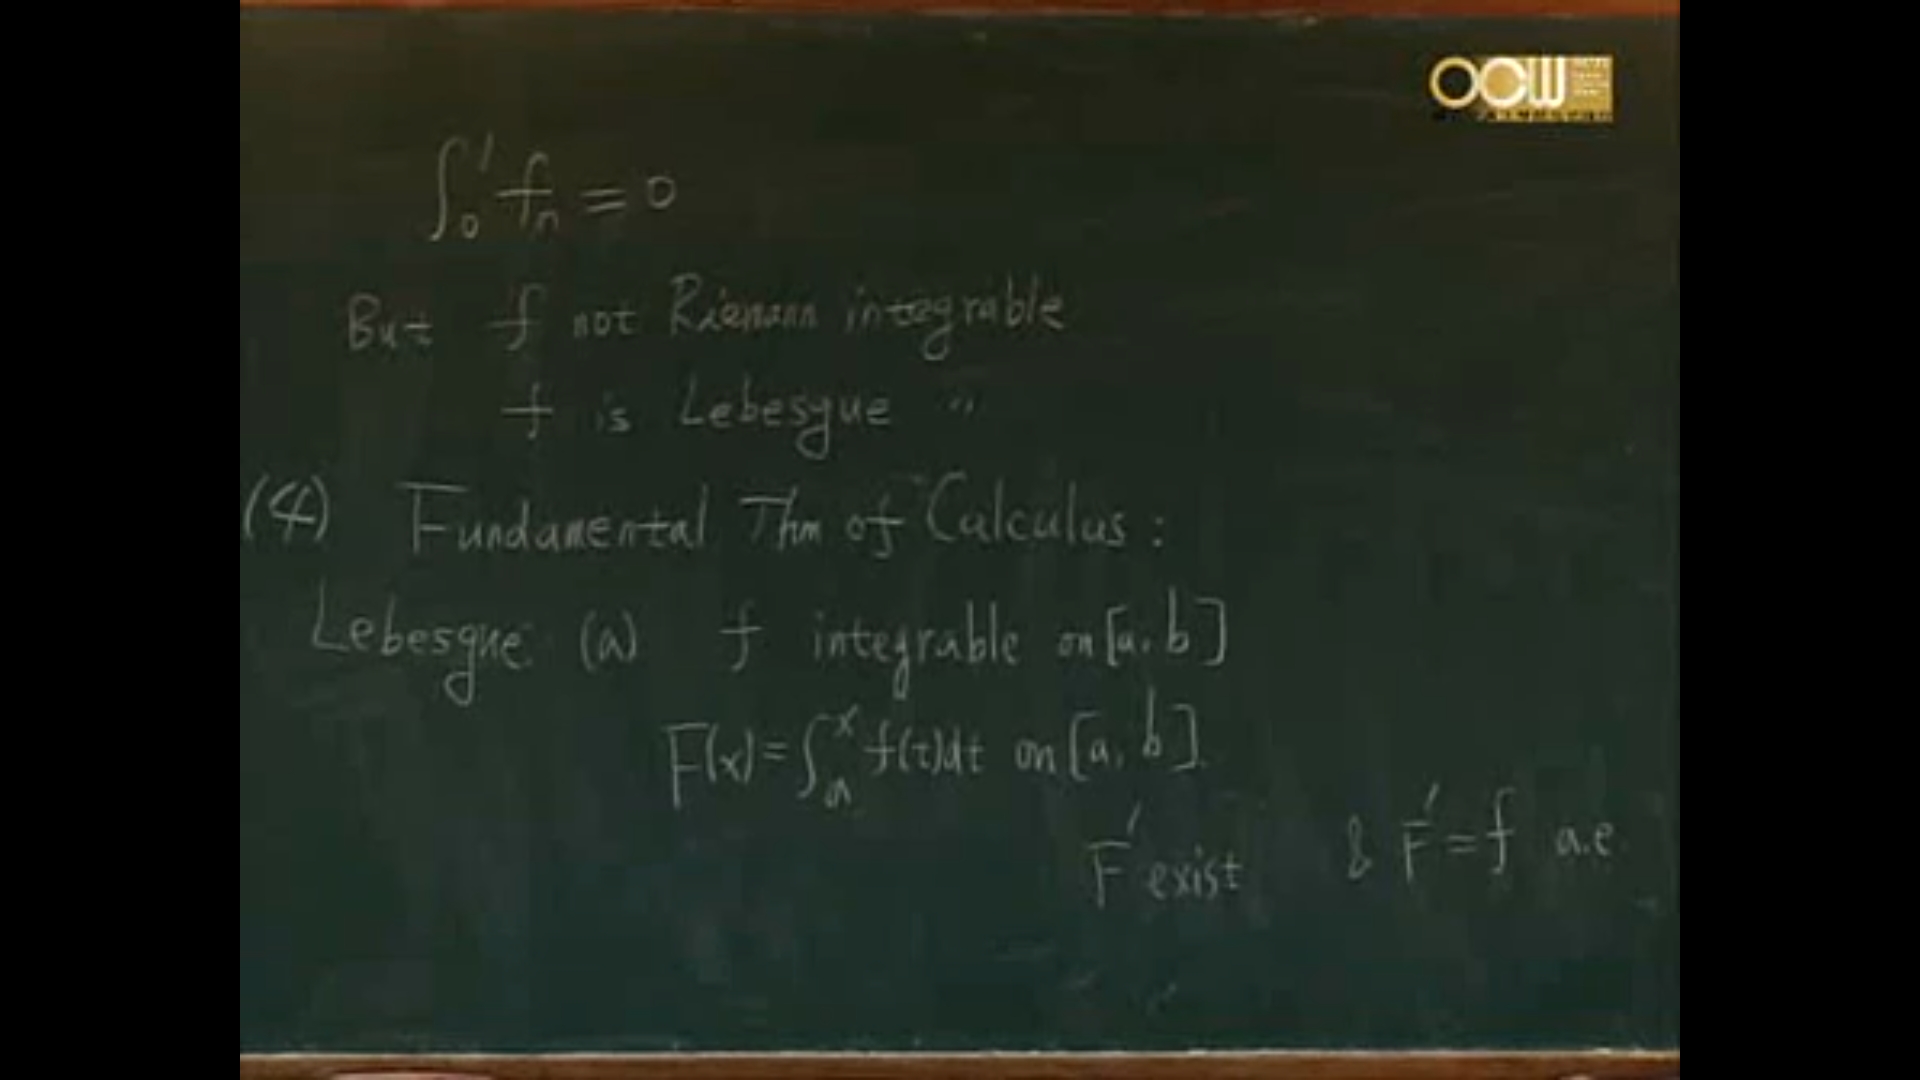 OCW
∫₀¹ fₙ = 0
But f not Riemann integrable
f is Lebesgue "
(4) Fundamental Thm of Calculus:
Lebesgue: (a) f integrable on [a, b]
F(x) = ∫ₐˣ f(t)dt on [a, b].
F' exist & F' = f a.e.